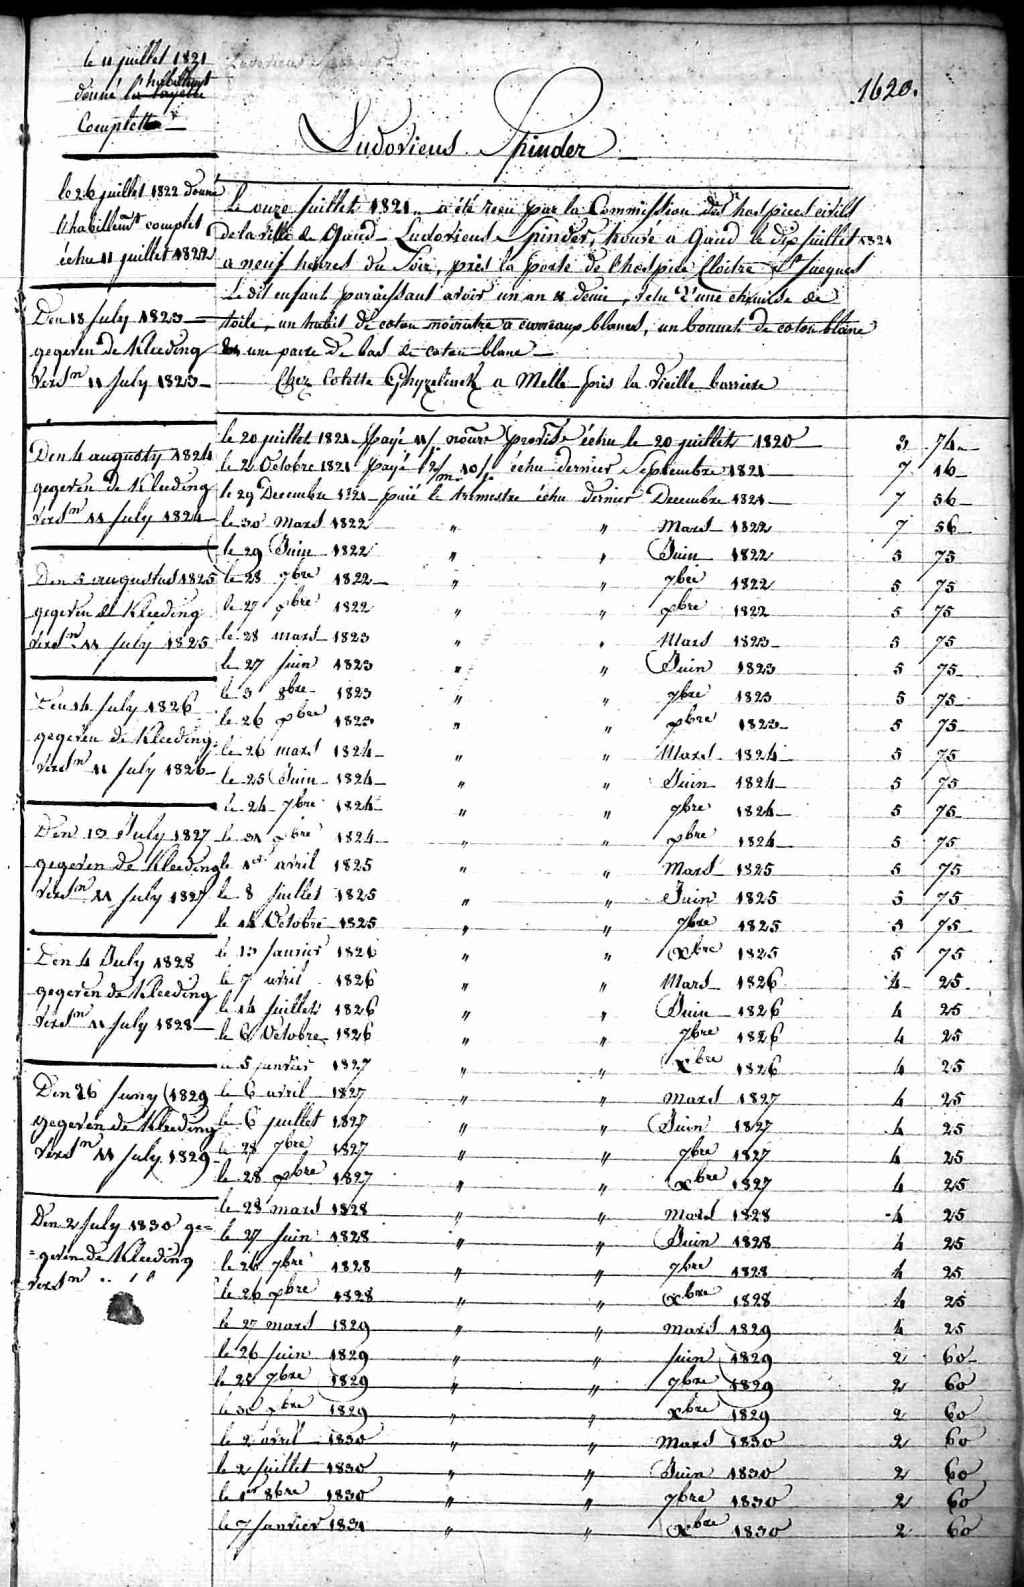 le 11 juillet 1821
donné l'habillement
Complette
1620.
Ludovicus Spinder
le 26 juillet 1822 donné
l'habillemt complet
échu 11 juillet 1822
Le onze juillet 1821 a été reçu par la Commission des hospices civils
de la ville de Gand Ludovicus Spinder, trouvé a Gand le dix juillet 1821
a neuf heures du soir, près la porte de l'hospice Cloitre St Jacques
Le dit enfant paraissant avoir un an & demi, vetu d'une chemise de
toile, un habit de coton noiratre a carreaux blancs, un bonnet de coton blanc
une paire de bas de coton blanc
Chez Colette Ghyzelinck a Melle près la vieille barriere
Den 18 July 1823
gegeven de Kleeding
vers.n 11 July 1823
Den 4 augusty 1824
gegeven de Kleeding
vers.n 11 July 1824
Den 5 augustus 1825
gegeven de Kleeding
vers.n 11 July 1825
Den 14 July 1826
gegeven de Kleeding
vers.n 11 July 1826
Den 13 July 1827
gegeven de Kleeding
vers.n 11 July 1827
Den 4 July 1828
gegeven de Kleeding
vers.n 11 July 1828
Den 26 Juny 1829
gegeven de Kleeding
vers.n 11 July 1829
Den 2 July 1830 ge=
=geven de Kleeding
vers.n
le 20 juillet 1821 payé échu le 20 juillet 1820 3 74
le 2 Octobre 1821 payé échu dernier Septembre 1821 7 16
le 29 Decembre 1821 payé le trimestre échu dernier Decembre 1821 7 56
le 30 Mars 1822 " " Mars 1822 7 56
le 29 Juin 1822 " " Juin 1822 5 75
le 28 7bre 1822 " " 7bre 1822 5 75
le 27 xbre 1822 " " xbre 1822 5 75
le 28 mars 1823 " " Mars 1823 5 75
le 27 juin 1823 " " Juin 1823 5 75
le 3 8bre 1823 " " 7bre 1823 5 75
le 26 xbre 1823 " " xbre 1823 5 75
le 26 mars 1824 " " Mars 1824 5 75
le 25 Juin 1824 " " Juin 1824 5 75
le 24 7bre 1824 " " 7bre 1824 5 75
le 31 xbre 1824 " " xbre 1824 5 75
le 1er avril 1825 " " Mars 1825 5 75
le 8 juillet 1825 " " Juin 1825 5 75
le 14 Octobre 1825 " " 7bre 1825 5 75
le 13 janvier 1826 " " xbre 1825 5 75
le 7 avril 1826 " " Mars 1826 4 25
le 14 juillet 1826 " " Juin 1826 4 25
le 6 Octobre 1826 " " 7bre 1826 4 25
le 5 janvier 1827 " " xbre 1826 4 25
le 6 avril 1827 " " mars 1827 4 25
le 6 juillet 1827 " " Juin 1827 4 25
le 28 7bre 1827 " " 7bre 1827 4 25
le 28 xbre 1827 " " xbre 1827 4 25
le 28 mars 1828 " " mars 1828 4 25
le 27 juin 1828 " " Juin 1828 4 25
le 26 7bre 1828 " " 7bre 1828 4 25
le 26 xbre 1828 " " xbre 1828 4 25
le 27 mars 1829 " " mars 1829 4 25
le 26 juin 1829 " " juin 1829 2 60
le 28 7bre 1829 " " 7bre 1829 2 60
le 30 xbre 1829 " " xbre 1829 2 60
le 2 avril 1830 " " Mars 1830 2 60
le 2 juillet 1830 " " Juin 1830 2 60
le 1er 8bre 1830 " " 7bre 1830 2 60
le 7 janvier 1831 " " xbre 1830 2 60